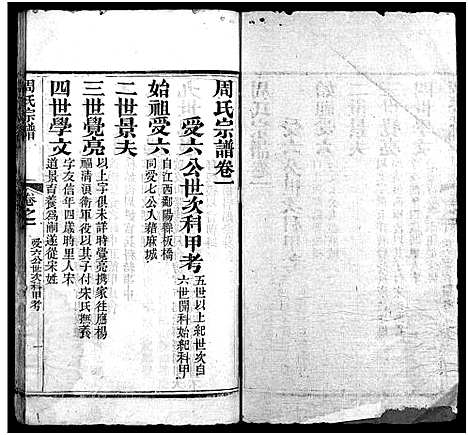 周氏宗譜卷一
受六公世次科甲考
五世以上紀世次自
六世開科始紀科甲
始祖受六
自江西鄱陽縣板橋
同受七公入藉麻城
二世景夫
三世覺亮
以上字俱未詳時覺亮携家往應楊
福清滇衛軍役以其子付宋氏撫養
四世學文
字友信年四歲時里人宋
道景育養爲嗣遂從宋姓
周氏宗譜
卷之一
受六公世次科甲考
一